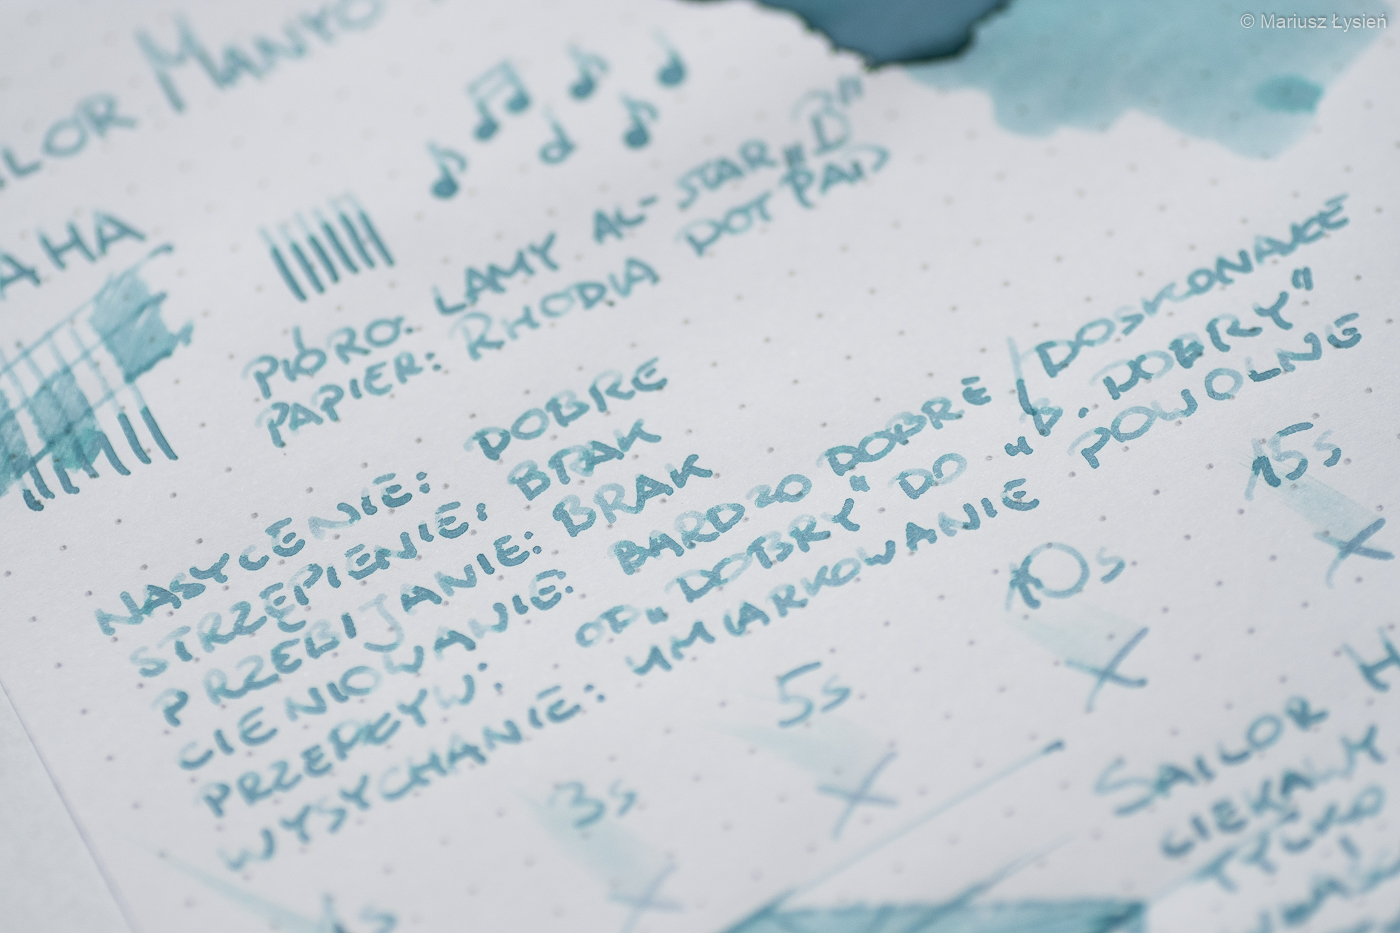 © Mariusz Łysień
ILOR MANYO
AHA
PIÓRO: LAMY AL-STAR „B”
PAPIER: RHODIA DOT PAD
NASYCENIE: DOBRE
STRZĘPIENIE: BRAK
PRZEBIJANIE: BRAK
CIENIOWANIE: BARDZO DOBRE / DOSKONAŁE
PRZEPŁYW: OD „DOBRY” DO „B. DOBRY”
WYSYCHANIE: UMIARKOWANIE POWOLNE
1s 3s 5s 10s 15s
SAILOR
CIEKAWY
TYLKO